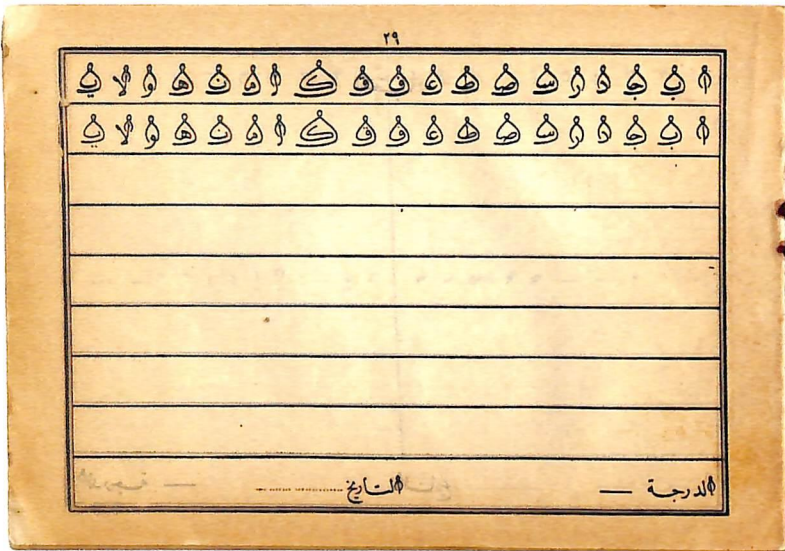 ٢٩
ا ب ج د ر س ص ط ع ف ق ك ل م ن ه و لا ي
ا ب ج د ر س ص ط ع ف ق ك ل م ن ه و لا ي
الدرجة — التاريخ ............